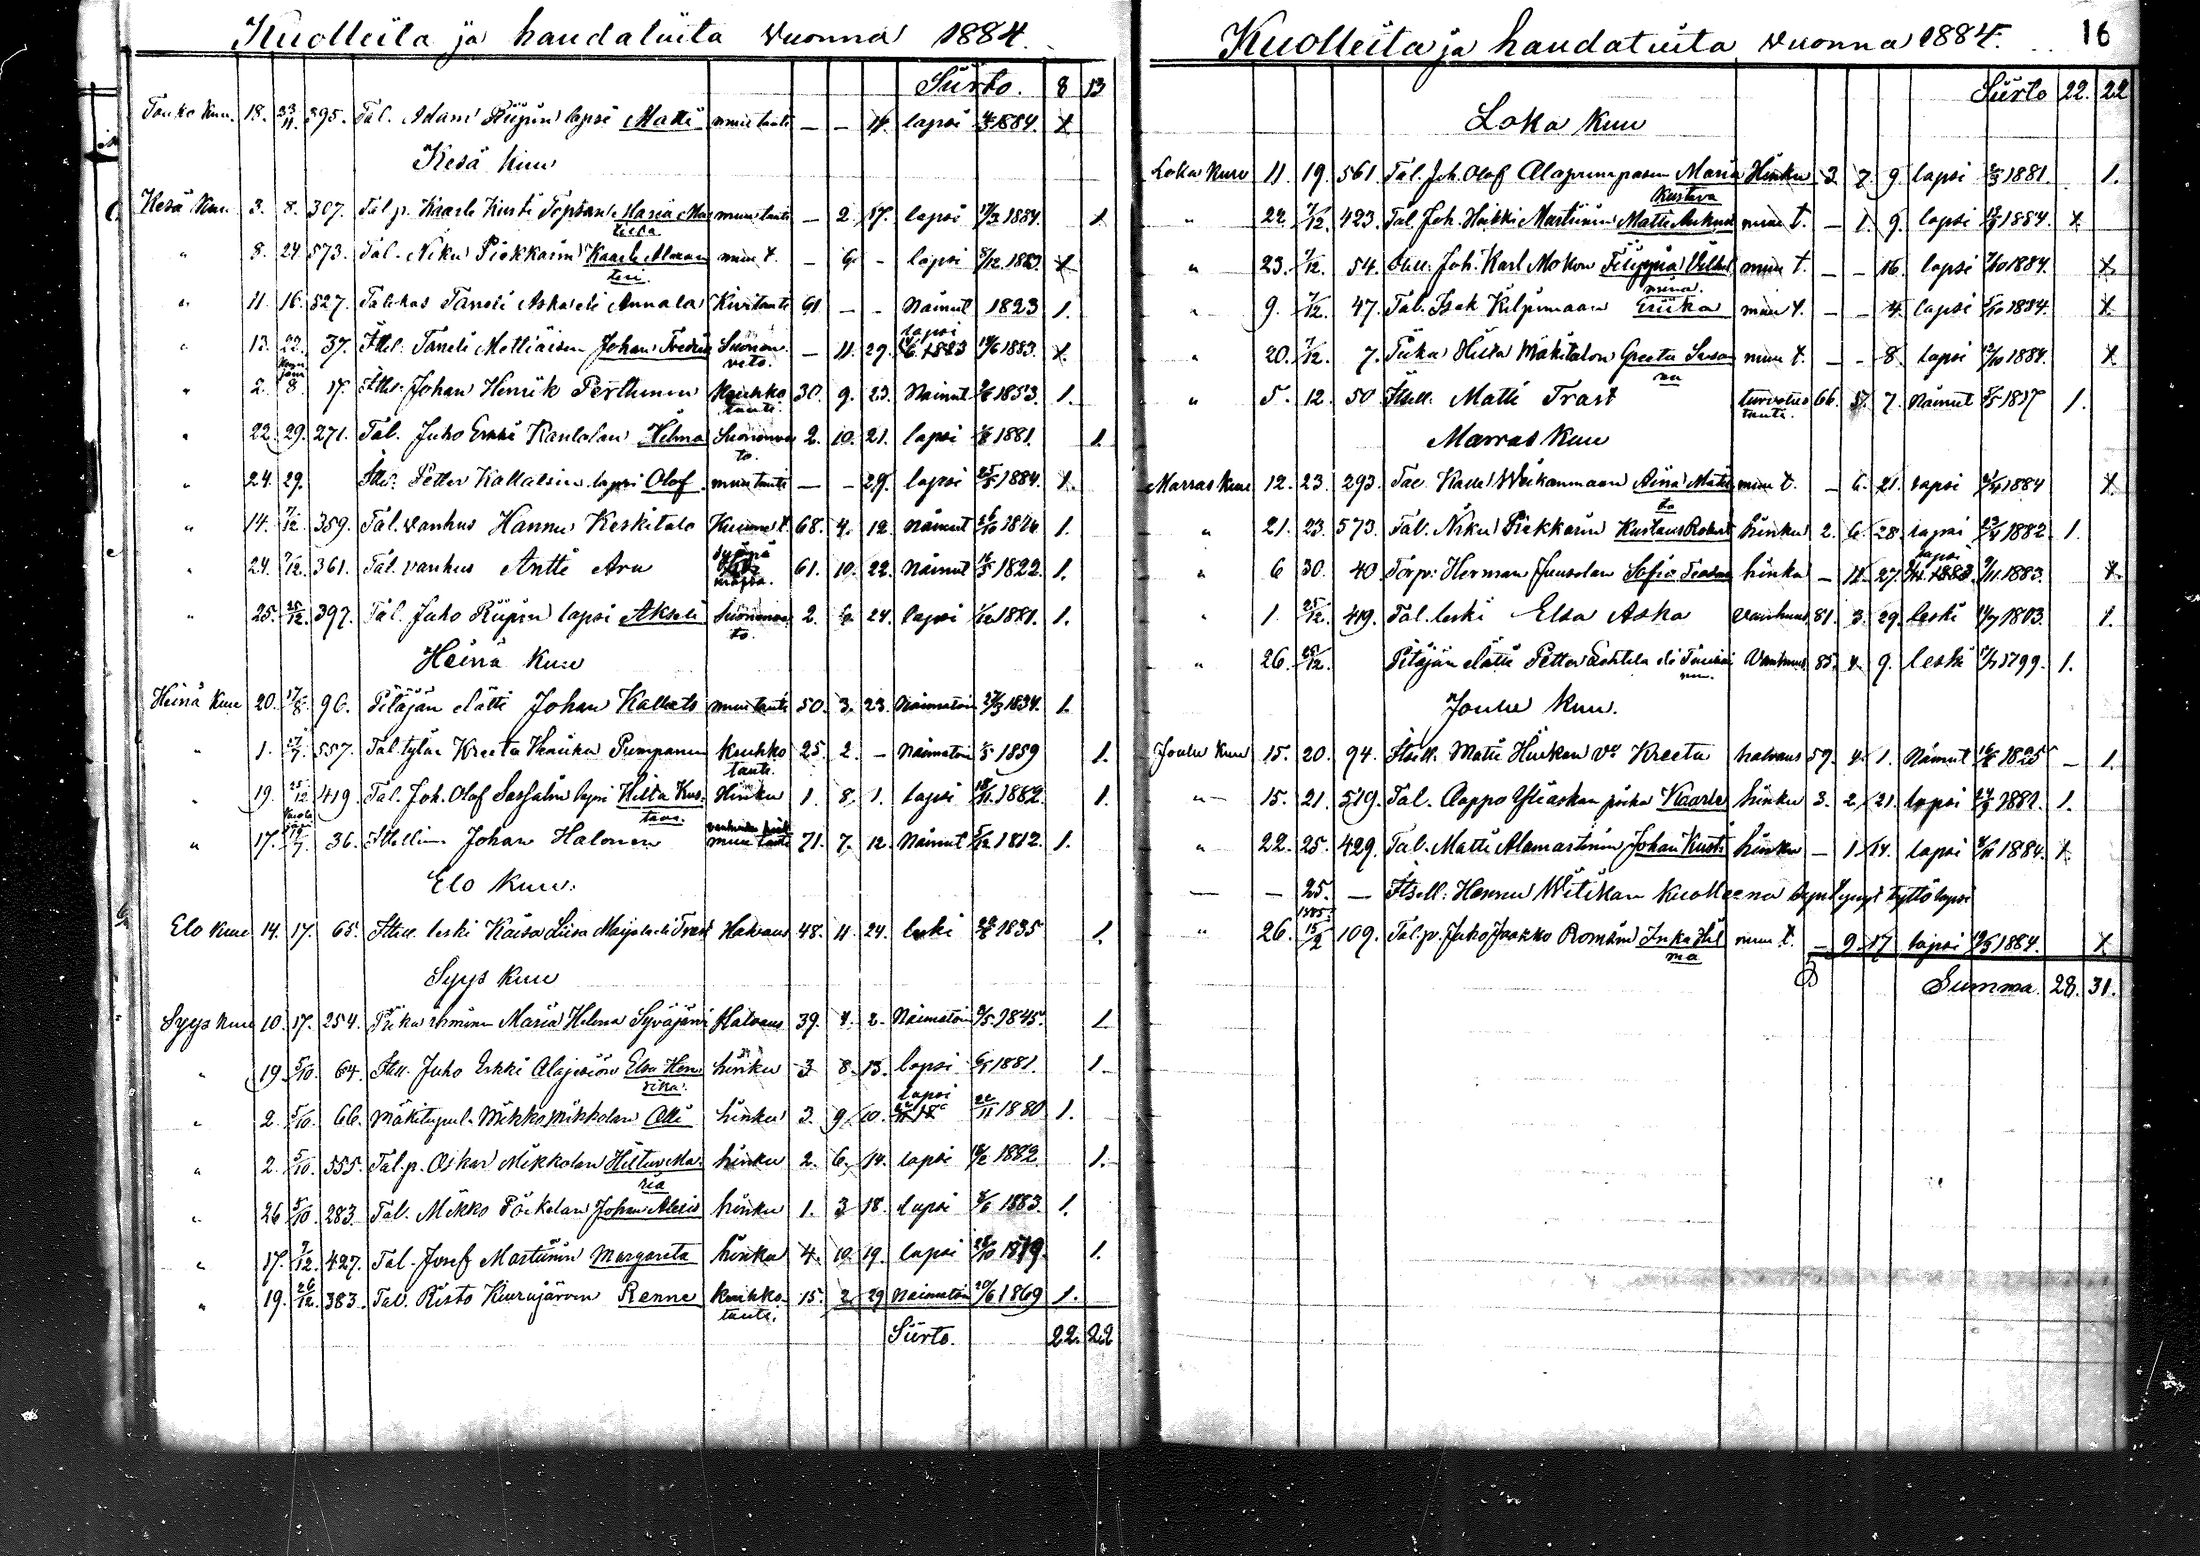 Kuolleita ja haudatuita vuonna 1884.
Siirto. 8 13
Touko kuu. 18. 23/11. 395. Tal. Adam Riipin lapsi Matti muu tauti — — 14. lapsi 1884. 1
Kesä kuu
Kesä kuu. 3. 8. 307. Tal. p. Kaarle Kusti Maria Ma muu tauti — 2. 17. lapsi 17/3 1884. 1
tilda
" 8. 24. 573. Tal. Niku Piekkarin Kaarle muu t. — 6. - lapsi 8/12 1883. 1
teri.
" 11. 16. 527. Taneli Aska eli Annala Kivitauti 61 — - Nainut 1823 1.
lapsi
" 13. 22. 37. Itsel. Taneli Mettiäisen Johan Fredrik Suonen — 11. 29. 14/6 1883 14/6 1883. 1.
veto.
" 2. 8. 17. Itsel. Johan Henrik Perttunen Keuhko 30. 9. 23. Nainut 1853. 1.
tauti.
" 22. 29. 271. Tal. Juho Erkki Kantolan Helma Suonenve 2. 10. 21. lapsi 1/8 1881. 1
to.
" 24. 29. Itse. Petter Kallatsin lapsi Olof muu tauti — - 29. lapsi 25/5 1884. 1.
" 14. 7/12. 359. Tal. vanhus Hannu Keskitalo Kuume t. 68. 4. 12. Nainut 1816 1.
" 24. 7/12. 361. Tal. vanhus Antti Aru Syöpä 61. 10. 22. Nainut 1822. 1.
" 25. 25/12. 397. Tal. Juho Riipin lapsi Akseli Suonenve 2. 6. 24. lapsi 1/12 1881. 1.
to.
Heinä kuu
Heinä kuu 20. 17/8. 96. Pitäjän elätti Johan Kallats muu tauti 50. 3. 23. Naimatoin 27/3 1834. 1.
" 1. 17/7. 557. Tal. tytär Kreeta Pumpanen keuhko 25. 2. - Naimatoin 1859 1.
tauti.
" 19. 25/12 419. Tal. Joh. Olof Sassalin lapsi Hilta Kus- Hinku 1. 8. 1. lapsi 18/11 1882. 1.
taava.
" 17. 36. Itsellinen Johan Halonen muu tauti 71. 7. 12. Nainut 5/12 1812. 1.
Elo kuu.
Elo kuu 14. 17. 65. Itsell. leski Kaisa Liisa Halvaus 48. 11. 24. leski 1835 1.
Syys kuu
Syys kuu 10. 17. 254. Piika Maria Helena Syväjärvi Halvaus 39. 4. 2. Naimatoin 8/5 1845. 1
" 19. 5/10. 64. Itsell. Juho Erkki Elsa Hen hinku 3 8. 13. lapsi 6/1 1881. 1.
rika.
lapsi
" 2. 5/10. 66. Mäkitupal. Mikko Mikkolan Olli hinku 3. 9. 10. 22/11 1880 1.
" 2. 5/10. 555. Tal. p. Oskar Mikkolan Hiltu Ma- hinku 2. 6. 14. lapsi 1882. 1.
ria
" 26. 5/10. 283. Tal. Mikko Pöikelan Johan Aleksi hinku 1. 3 18. lapsi 8/6 1883. 1.
" 17. 7/12. 427. Tal. Josef Martinin Margareta hinku 4. 10. 19. lapsi 28/10 1879. 1.
" 19. 26/12. 383. Tal. Risto Kiurujärven Renne keuhko- 15. 2. 29 Naimatoin 20/6 1869 1.
tauti.
Siirto. 22. 22
Kuolleita ja haudatuita vuonna 1884. 16
Siirto 22. 22
Loka kuu
Loka kuu 11. 19. 561. Tal. Joh. Olof Alapumpasen Maria Hinku 3. 7. 9. lapsi 2/3 1881. 1.
Kustava
" 22. 7/12. 423. Tal. Joh. Heikki Martinin Matti muu t. — 1. 9. lapsi 13/9 1884. 1
" 23. 7/12. 54. Itsell. Joh. Karl Mokon Filippina Vilhel muu t. — - 16. lapsi 7/10 1884. 1.
mina.
" 9. 7/12. 47. Tal. Isak Kilpimaan Eriika muu t. — - 4. lapsi 5/10 1884. 1
" 20. 7/12. 7. Piika Hilta Mäkitalon Greeta Susan muu t. — - 8. lapsi 12/10 1884. 1
na
" 5. 12. 50. Itsell. Matti Trast turvotus 66. 7. Nainut 1817 1.
tauti.
Marras kuu
Marras kuu 12. 23. 293. Tal. Kalle Weikanmaan Aina Matil muu t. — 6. 21. lapsi 1884 1.
da
" 21. 23. 573. Tal. Niku Piekkarin Kustaus Robert hinku 2. 6. 28. lapsi 23/4 1882. 1.
lapsi
" 6 30. 40 Torp. Herman Juusolan Sofia hinku — 11. 27. 9/11 1883. 9/11 1883. 1.
" 1. 25/12. 419. Tal. leski Elsa Aska vanhuus 81. 3. 29. leski 1803. 1.
" 26. 25/12. Pitäjän elätti Petter Lehtela eli Vanhuus 85. 4. 9. leski 17/7 1799. 1.
Joulu kuu.
Joulu kuu 15. 20. 94. Itsell. Matti Hiukan vo Kreeta halvaus 59. 4. 1. Nainut 1825 — 1.
" 15. 21. 519. Tal. Aappo Yliaskan poika Kaarle hinku 3. 2. 21. lapsi 24/9 1881. 1.
" 22. 25. 429. Tal. Matti Alamartinin Johan Kusti hinku — 1. 14. lapsi 8/11 1884. 1.
— — 25. — Itsell. Hannu Witikan kuolleena syntynyt tyttö lapsi
1885.
" 26. 15/2 109. Tal. p. Juho Jaakko Romsin Inka Hil muu t. — 9. 17. lapsi 1884. 1
ma
Summa. 28. 31.